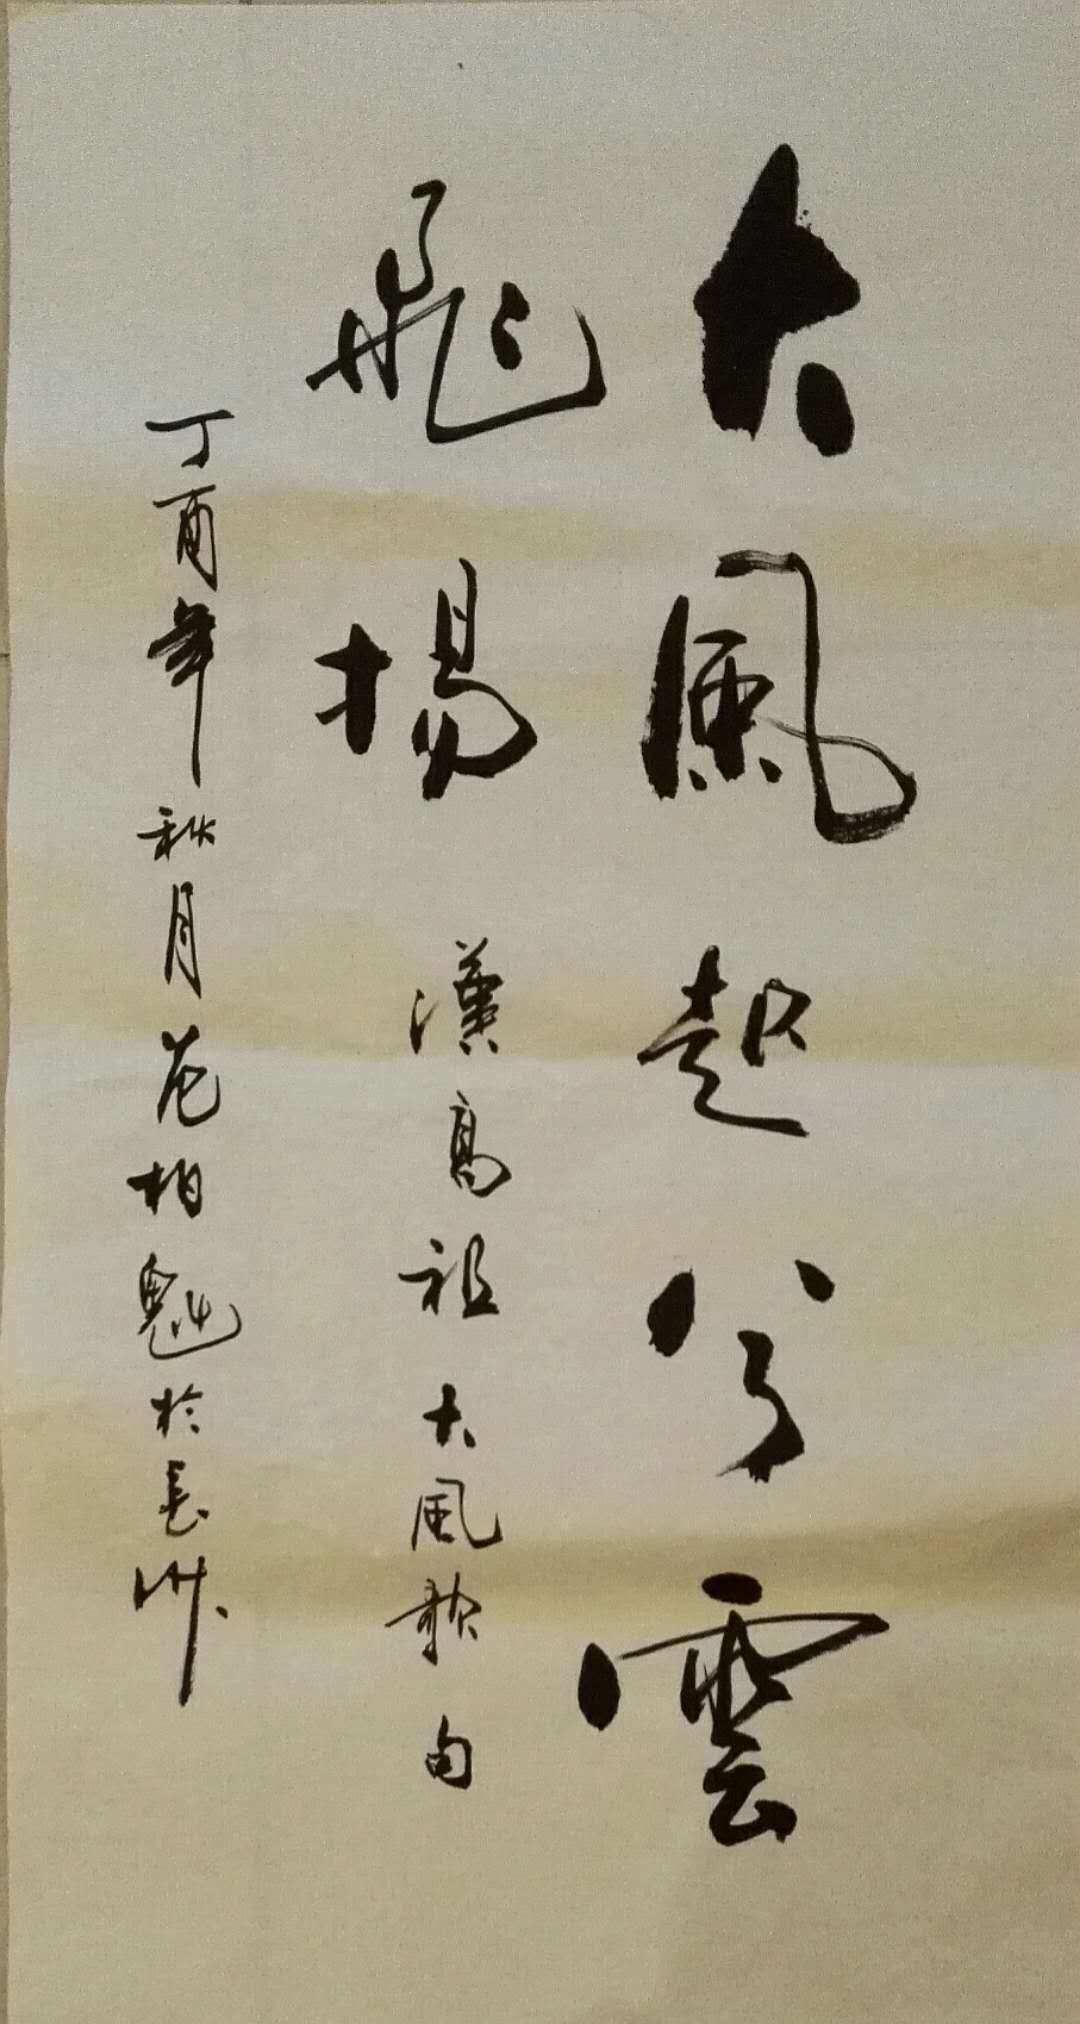 大風起兮雲
飛揚 漢高祖大風歌句
丁酉年秋月范柏魁於長沙